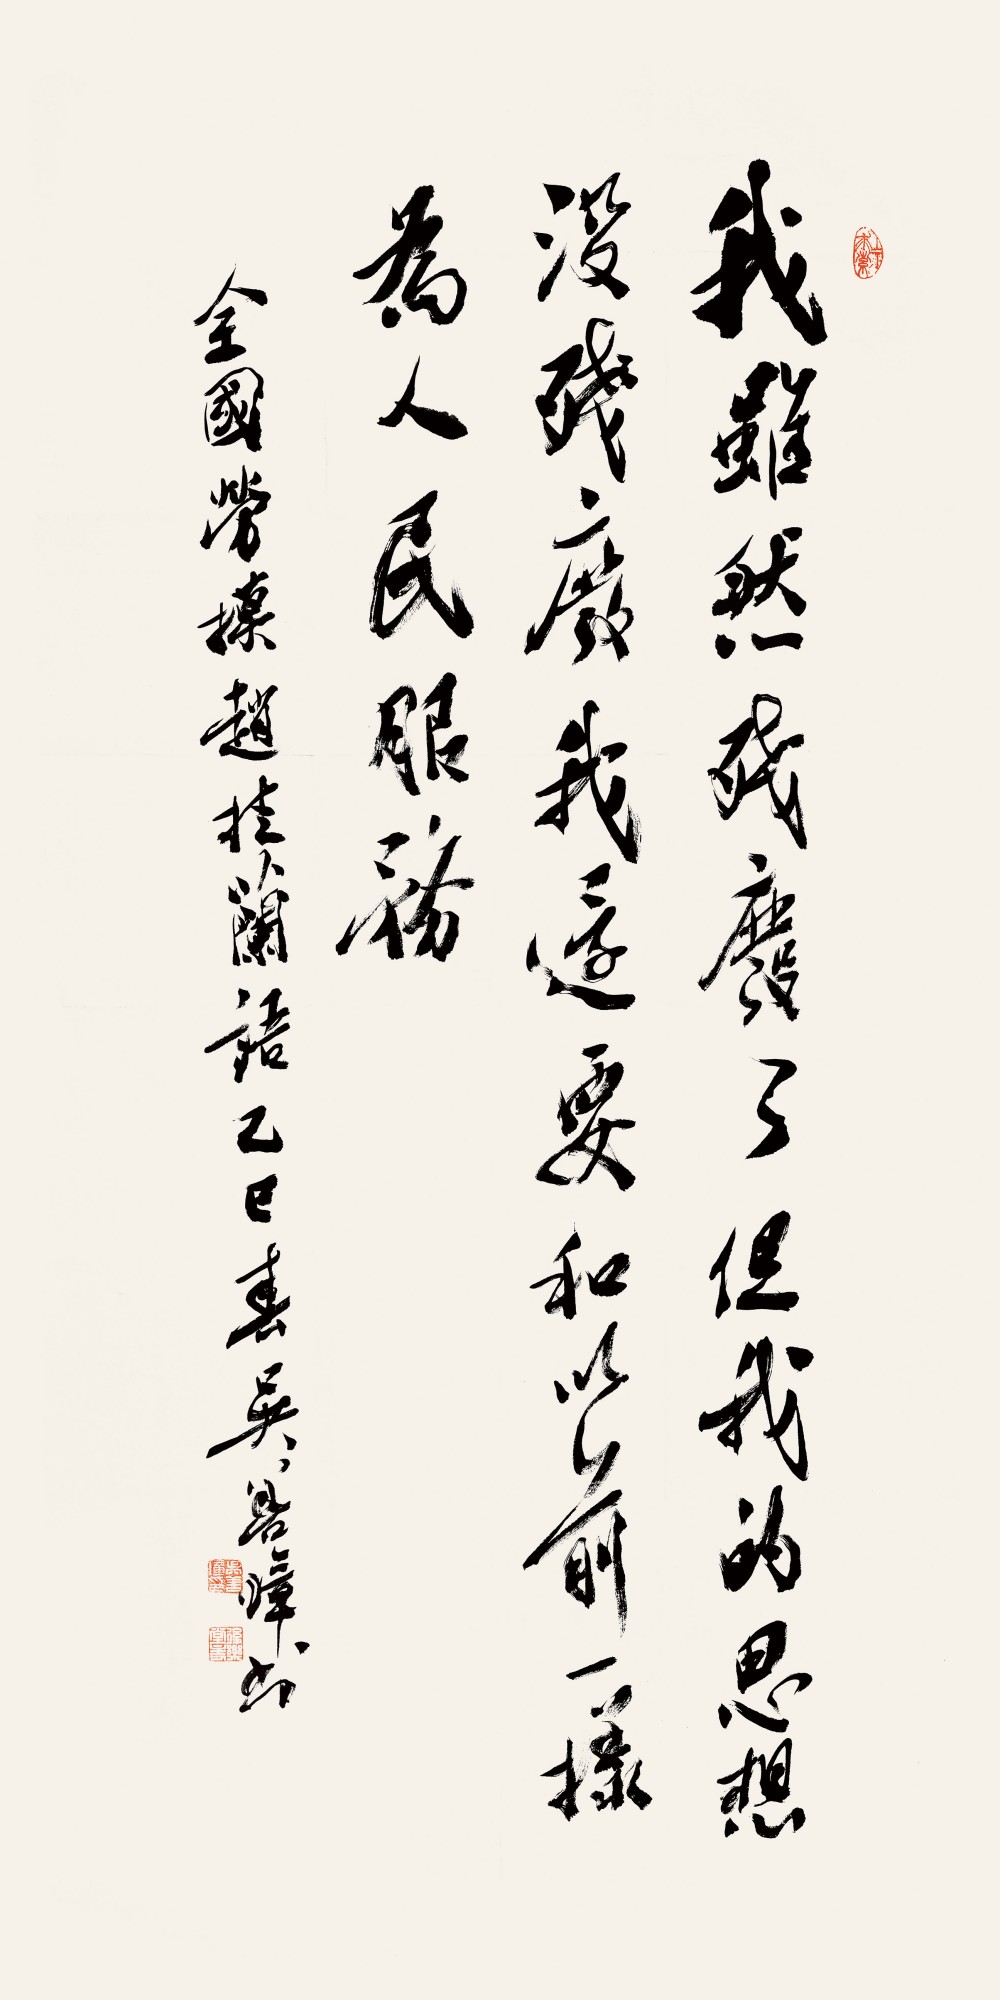 我雖然残廢了但我的思想
没殘廢我還要和以前一樣
為人民服務
全國勞模趙桂蘭語乙巳春吴書